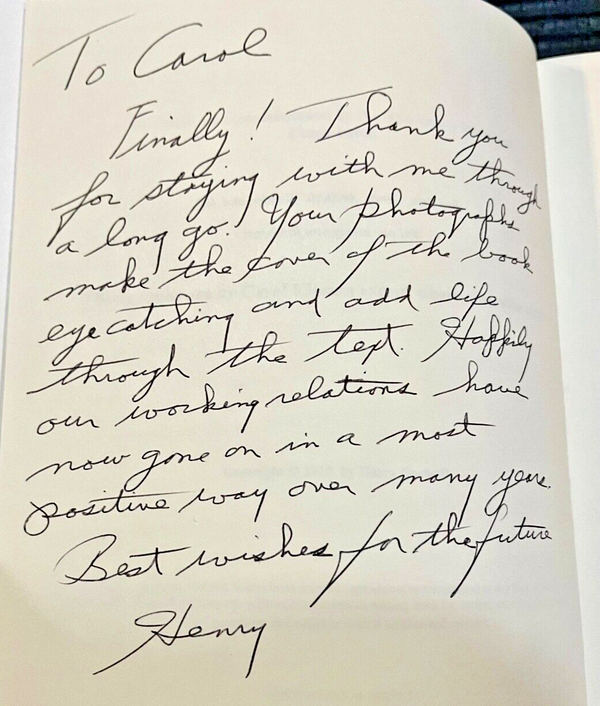 To Carol
Finally! Thank you
for staying with me through
a long go. Your photographs
make the cover of the book
eyecatching and add life
through the text. Happily
our working relations have
now gone on in a most
positive way over many years.
Best wishes for the future
Henry